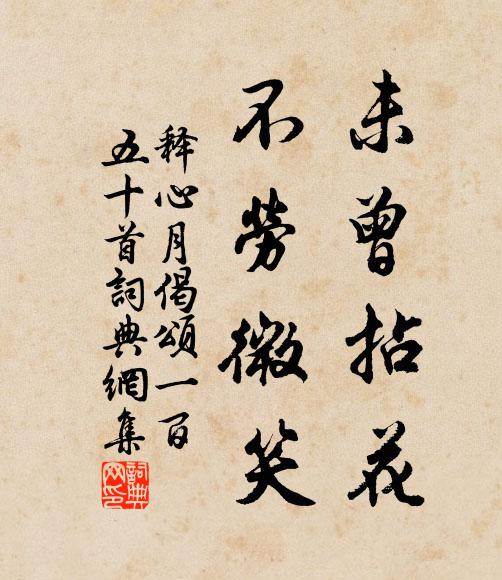 未曾拈花
不勞微笑
释心月偈頌一百
五十首詞典網集
詞典网印